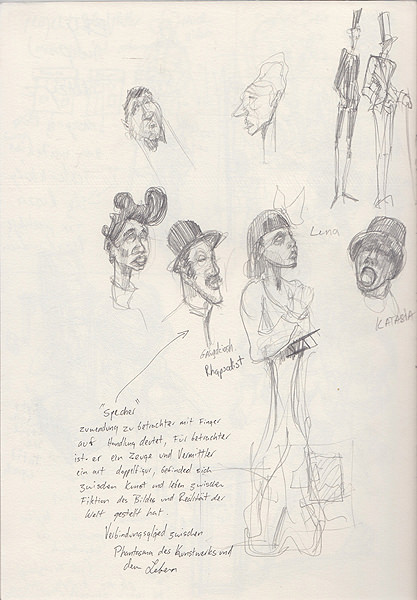 Lena
KATASIA
Rhapsodist
"Specher"
zuwendung zu betrachter mit Finger
auf Handlung deutet, Für betrachter
ist er ein Zeuge und Vermittler
ein art doppelfigur, befindet sich
zwischen Kunst und leben zwischen
Fiktion des Bildes und Realität der
Welt gestellt hat
Verbindungsglied zwischen
Phantasma des Kunstwerks und
dem Leben